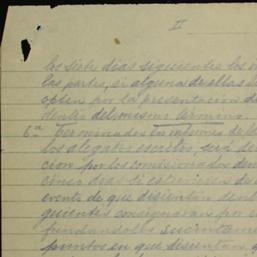 I
los siete días siguientes los in
las partes, si alguna de ellas de
opten por la presentación de
dentro del mismo término.
6ª Terminados los informes de la
los alegatos escritos, será de
cion por los comisionados den
cinco días si estuvieren de
evento de que disientan dent
guientes consignaran por e
fundandolos sucintame
puntos en que disientan, q